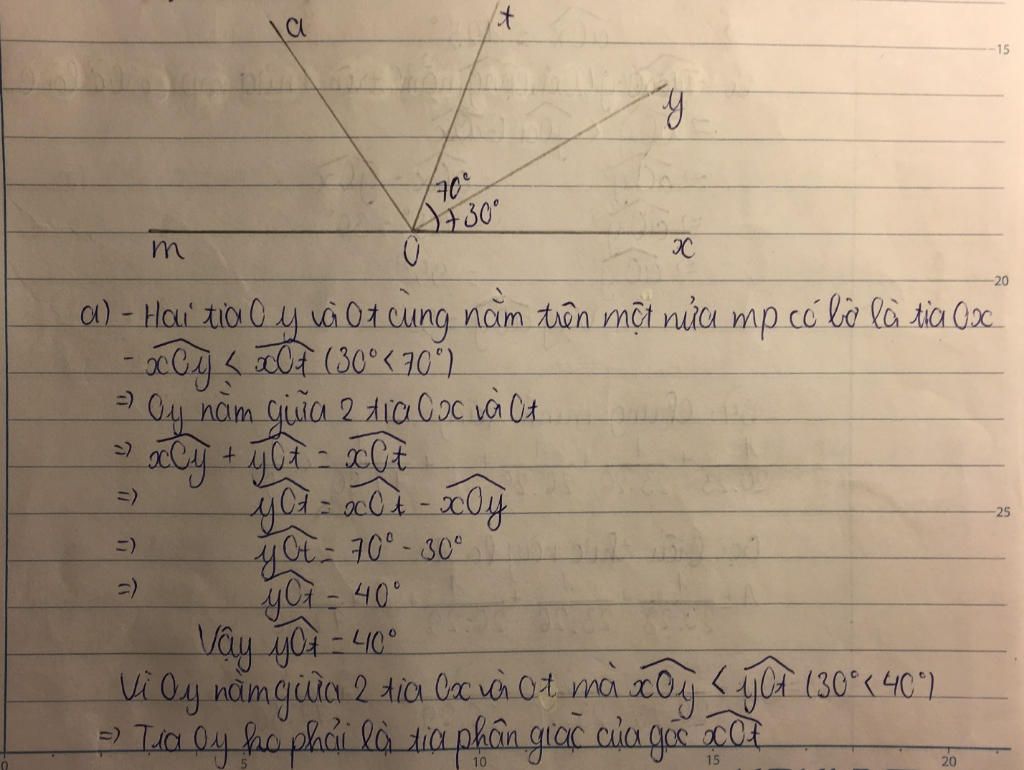 a
t
y
70°
30°
m
O
x
a) - Hai tia Oy và Ot cùng nằm trên một nửa mp có bờ là tia Ox
- xOy < xOt (30° < 70°)
=> Oy nằm giữa 2 tia Ox và Ot
=> xOy + yOt = xOt
=> yOt = xOt - xOy
=> yOt = 70° - 30°
=> yOt = 40°
Vậy yOt = 40°
Vì Oy nằm giữa 2 tia Ox và Ot mà xOy < yOt (30° < 40°)
=> Tia Oy ko phải là tia phân giác của góc xOt
15
20
25
0
5
10
15
20